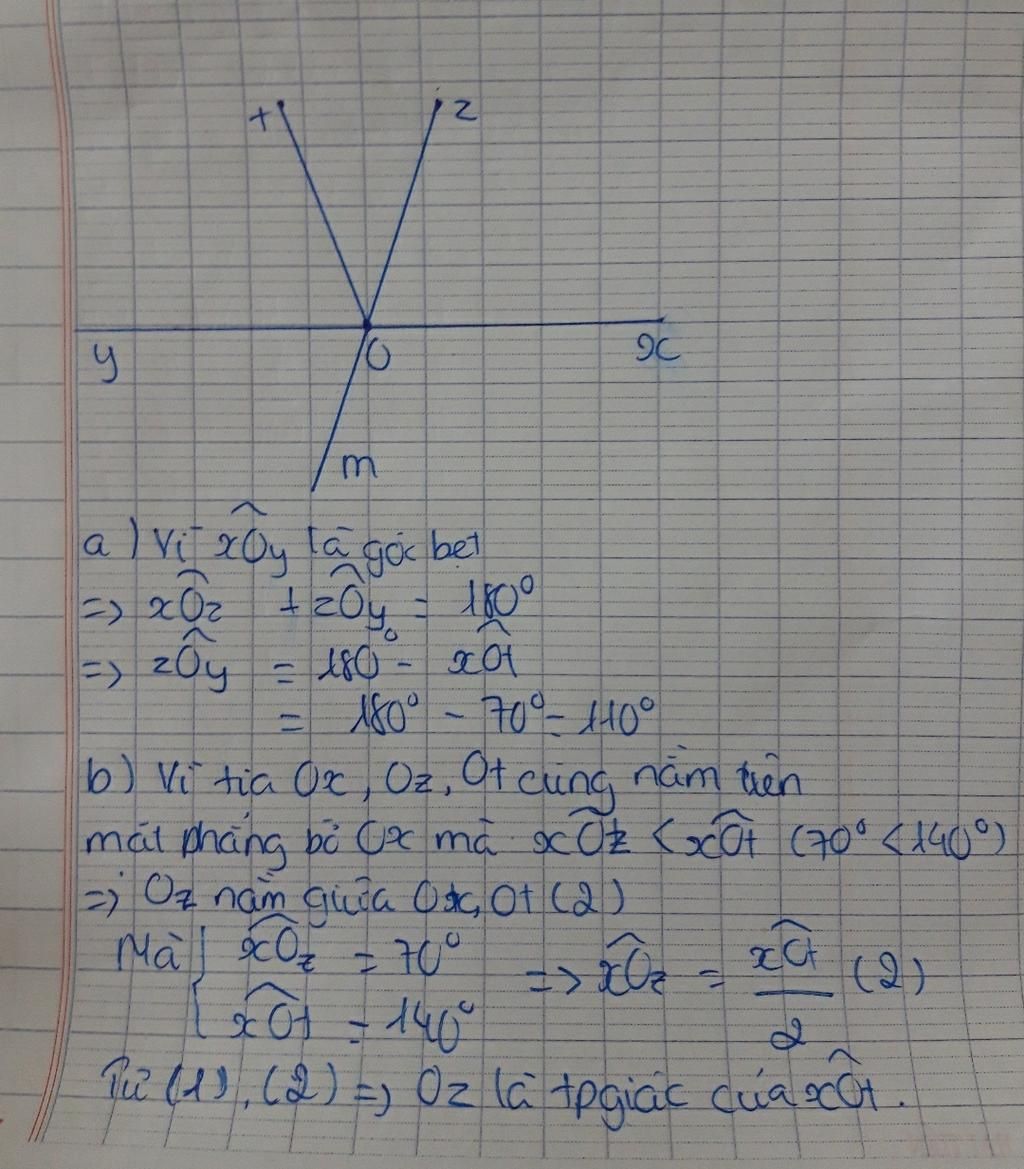 t z
y O x
m
a) Vì xÔy là góc bẹt
=> xÔz + zÔy = 180°
=> zÔy = 180° - xÔt
= 180° - 70° = 110°
b) Vì tia Ox, Oz, Ot cùng nằm trên
mặt phẳng bờ Ox mà xÔz < xÔt (70° < 140°)
=> Oz nằm giữa Ox, Ot (2)
Mà { xÔz = 70° => xÔz = xÔt/2 (2)
xÔt = 140°
Từ (1), (2) => Oz là tpgiác của xÔt.